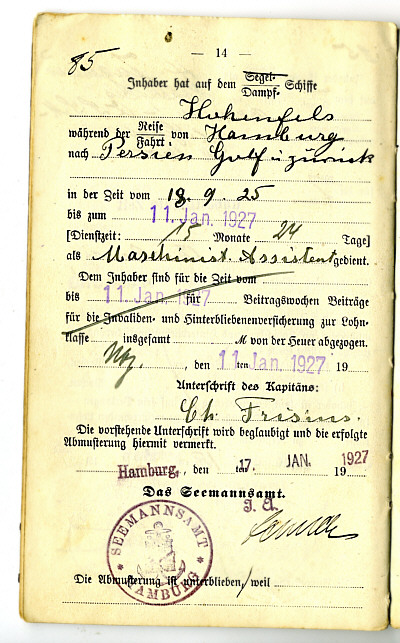 — 14 —
85
Inhaber hat auf dem Segel- Dampf- Schiffe
Hohenfels
während der Reise Fahrt von Hamburg
nach Persien Golf u zurück
in der Zeit vom 18. 9. 25
bis zum 11. Jan. 1927
[Dienstzeit: 15 Monate 24 Tage]
als Maschinist. Assistent gedient.
Dem Inhaber sind für die Zeit vom
bis 11. Jan. 1927 für Beitragswochen Beiträge
für die Invaliden- und Hinterbliebenenversicherung zur Lohn-
klasse insgesamt M von der Heuer abgezogen.
Hbg., den 11 ten Jan. 1927 19
Unterschrift des Kapitäns:
Ch. Frisius.
Die vorstehende Unterschrift wird beglaubigt und die erfolgte
Abmusterung hiermit vermerkt.
Hamburg, den 17. ten JAN. 1927 19
Das Seemannsamt.
J. A.
SEEMANNSAMT HAMBURG
Die Abmusterung ist unterblieben, weil